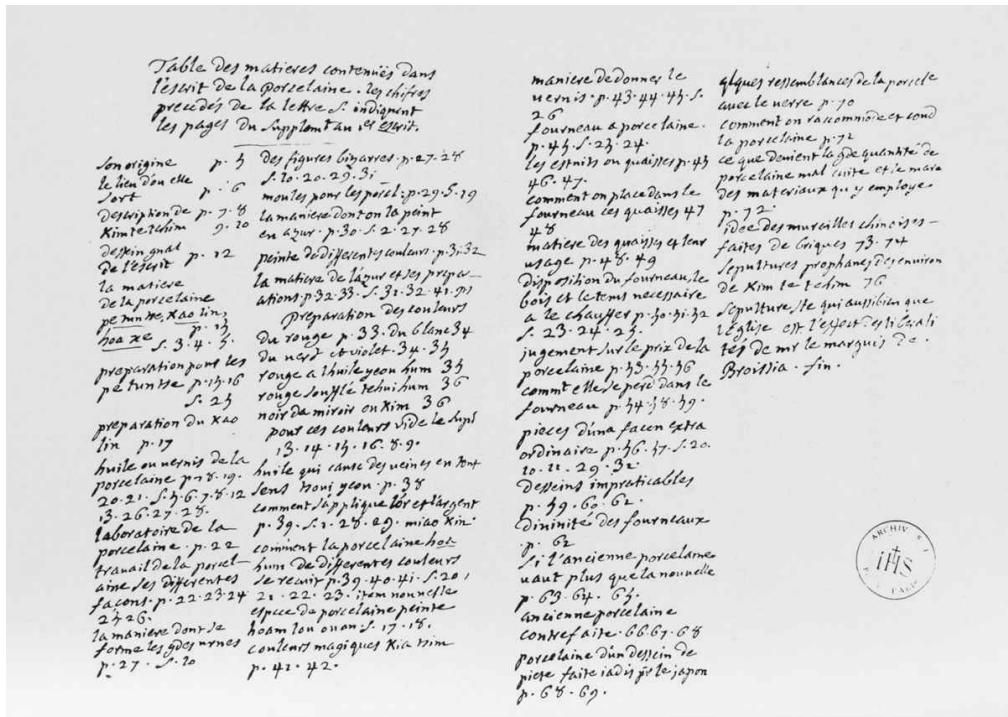 Table des matieres contenues dans
l'escrit de la porcelaine. les chifres
precedés de la lettre S. indiquent
les pages du Supplemt au 1er escrit.
Son origine p. 5
le lieu d'ou elle
sort p. 6
description de p. 7. 8
Kimtetchim 9. 10
dessein gnal
de l'escrit p. 12
la matiere
de la porcelaine
petuntse, Kao lin,
hoa xe p. 13
S. 3. 4. 5.
preparation pour les
petuntse p. 15. 16
S. 25
preparation du Kao
lin p. 17
huile ou vernis de la
porcelaine p. 18. 19.
20. 21. S. 5. 6. 7. 8. 12
13. 26. 27. 28.
laboratoire de la
porcelaine. p. 22
travail de la porcel-
aine ses differentes
facons. p. 22. 23. 24
25 26.
la maniere dont se
forme les gdes urnes
p. 27. S. 20
des figures bizarres. p. 27. 28
S. 10. 20. 29. 31
moules pour les porcel. p. 29. S. 19
la maniere dont on la peint
en azur. p. 30. S. 2. 27. 28
peinte de differentes couleurs. p. 31. 32
la matiere de l'azur et ses prepar-
ations. p. 32. 33. S. 31. 32. 41.
preparation des couleurs
du rouge p. 33. du blanc 34
du verd et violet. 34. 35
rouge a l'huile yeou hum 35
rouge soufflé tchui hum 36
noir de miroir ou Kim 36
pour ces couleurs vide le supl
13. 14. 15. 16. 8. 9.
huile qui cause des veines en tout
sens tsoui yeou. p. 38
comment s'applique l'or et l'argent
p. 39. S. 1. 28. 29. miao Kin.
comment la porcelaine hoa
hum de differentes couleurs
se recuit p. 39. 40. 41. S. 20,
21. 22. 23. item nouvelle
espece de porcelaine peinte
hoam lou ouan S. 17. 18.
couleurs magiques Kia tsim
p. 41. 42.
maniere de donner le
vernis. p. 43. 44. 45. S.
26
fourneau a porcelaine.
p. 45. S. 23. 24.
les estuits ou quaisses p. 45
46. 47.
comment on place dans le
fourneau ces quaisses 47
48
matiere des quaisses et leur
usage p. 48. 49
disposition du fourneau, le
bois et le tems necessaire
a le chauffer p. 50. 51. 52
S. 23. 24. 25.
jugement sur le prix de la
porcelaine p. 53. 55. 56
commt elle se perd dans le
fourneau p. 54. 58. 59.
pieces d'une facon extra
ordinaire p. 56. 57. S. 20.
10. 11. 29. 32
desseins impraticables
p. 59. 60. 62.
divinité des fourneaux
p. 62
si l'ancienne porcelaine
vaut plus que la nouvelle
p. 63. 64. 65.
ancienne porcelaine
contrefaite. 66. 67. 68
porcelaine d'un dessein de
pieté faite iadis pr le japon
p. 68. 69.
qlques ressemblances de la porcele
avec le verre p. 70
comment on raccommode et coud
la porcelaine p. 72
ce que devient la gde quantité de
porcelaine mal cuite et le marc
des materiaux qu'y employe
p. 72.
idée des murailles chinoises-
faites de briques 73. 74
Sepultures prophanes des environ
de Kim te tchim 76
sepulture Ste qui aussi bien que
l'eglise est l'effect des liberali
tés de mr le marquis de.
Broissia. fin.
ARCHIV. S. I.
IHS